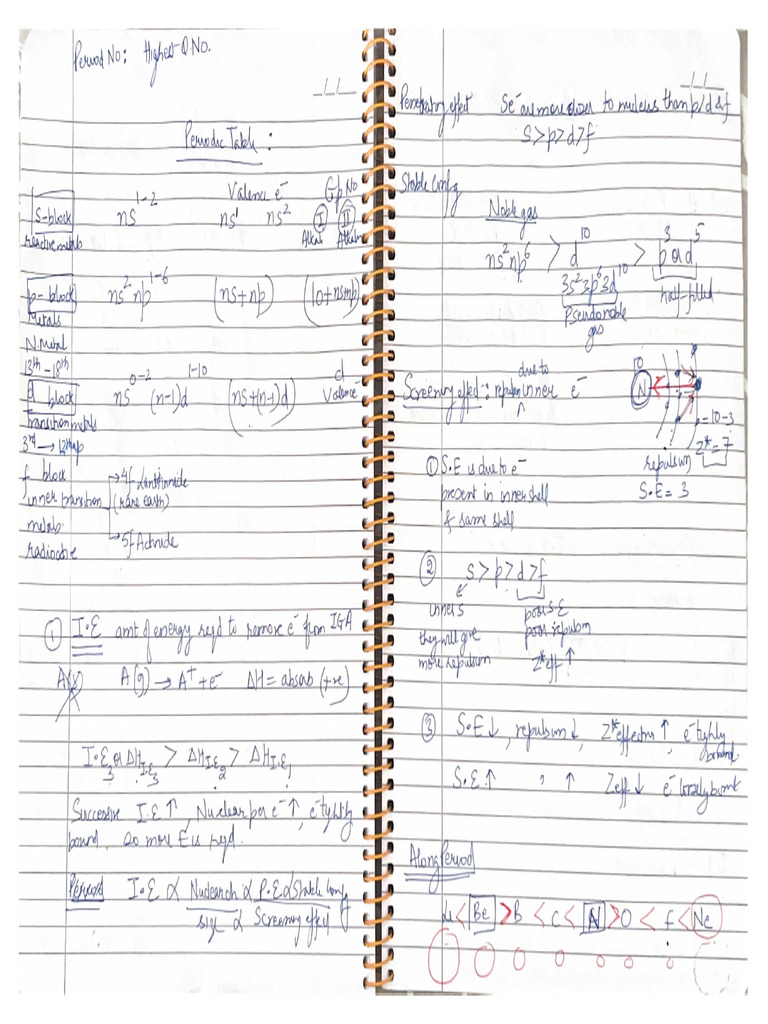 Period No: Highest Q No.
Periodic Table:
Valence e⁻ Gp No
S-block ns¹⁻² ns¹ ns² I II
reactive metals Alkali Alkaline
p-block ns² np¹⁻⁶ (ns+np) (10+ns+np)
Metals
N metal
13th - 18th
d block ns⁰⁻² (n-1)d¹⁻¹⁰ (ns+(n-1)d) d Valence e⁻
transition metals
3rd → 12th gp
f block → 4f Lanthanide
inner transition (rare earth)
metals
radioactive → 5f Actinide
① I.E amt of energy reqd to remove e⁻ from IGA
A(s) A(g) → A⁺ + e⁻ ΔH = absorb (+ve)
I.E₃ or ΔH I.E₃ > ΔH I.E₂ > ΔH I.E₁
Successive I.E ↑, Nuclear per e⁻ ↑, e⁻ tightly
bound, so more E is reqd.
Period I.E α Nuclear ch α P.E α Stable config
size α Screening effect
Penetrating effect S e⁻ are more closer to nucleus than p/d & f
s > p > d > f
Stable Config
Noble gas
ns² np⁶ > d¹⁰ > p³ or d⁵
3s² 3p⁶ 3d¹⁰ half-filled
Pseudo noble
gas
Screening effect: repulsion due to inner e⁻
10
N
= 10 - 3
Z* = 7
repulsion
S.E = 3
① S.E is due to e⁻
present in inner shell
& same shell
② s > p > d > f
inner s poor S.E
they will give poor repulsion
more repulsion Z*eff ↑
③ S.E ↓, repulsion ↓, Z* effective ↑, e⁻ tightly
bound
S.E ↑ " ↑ Zeff ↓ e⁻ loosely bount
Along Period
Li < Be > B < C < N > O < f < Ne